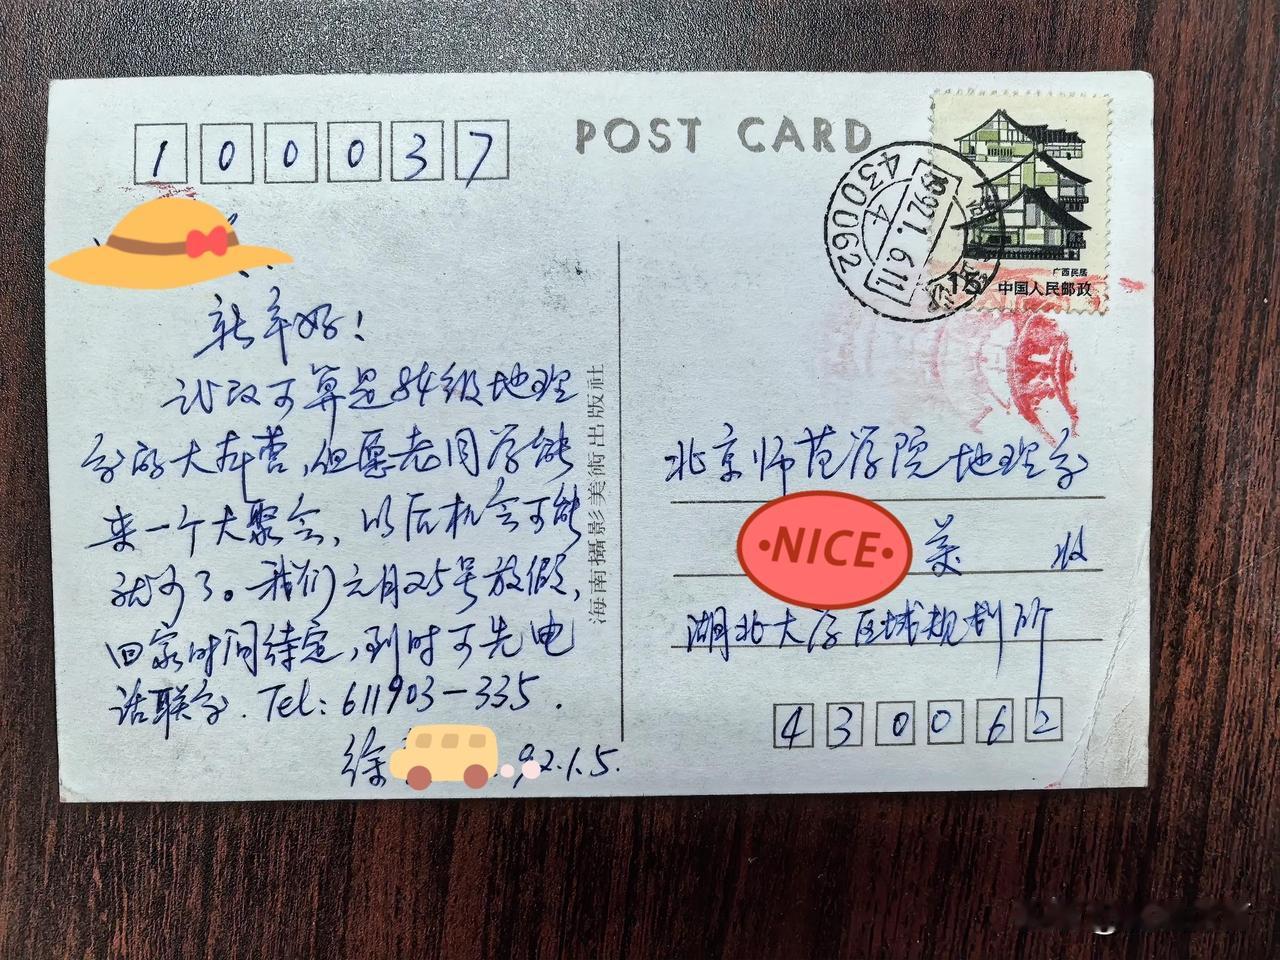 100037
POST CARD
430062
4
1992.1.6.11
广西民居
15
中国人民邮政
新年好!
武汉可算是84级地理
系的大本营,但愿老同学能
来一个大聚会,以后机会可能
就少了。我们元月25号放假,
回家时间待定,到时可先电
话联系.Tel:611903-335.
徐
92.1.5.
海南攝影美術出版社
北京师范学院地理系
·NICE·
英 收
湖北大学区域规划所
430062